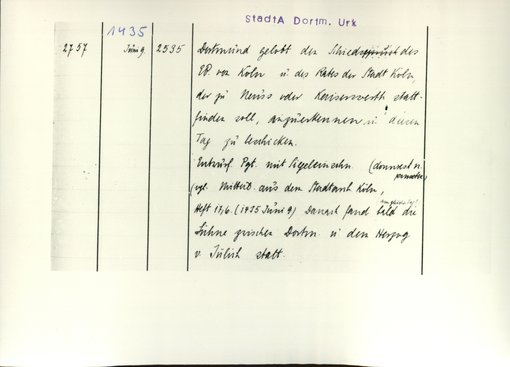 StadtA Dortm. Urk
1435
2757 Juni 9 2535 Dortmund gelobt den Schiedsspruch des
EB. von Köln u. des Rates der Stadt Köln,
der zu Neuss oder Kaiserswerth statt-
finden soll, anzuerkennen u. diesen
Tag zu beschicken.
Entwurf Pgt. mit Siegeleinschn.
(vgl. Mitteil. aus dem Stadtarch Köln,
Heft 17/6. (1435 Juni 9) Danach fand bald die
Sühne zwischen Dortm. u. dem Herzog
v. Jülich statt.